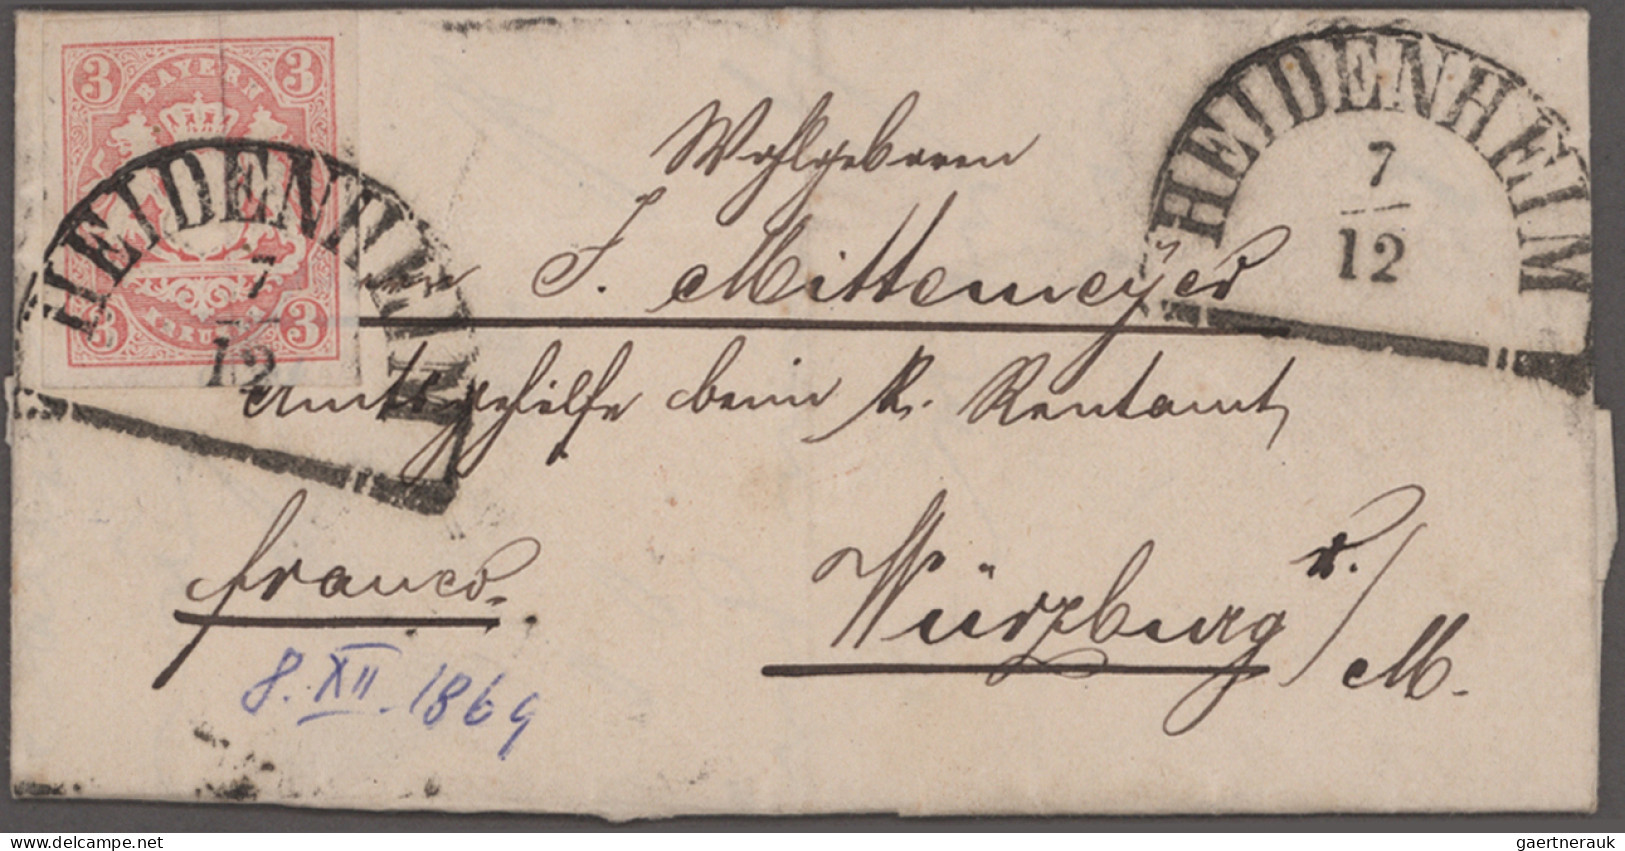 3 BAYERN 3
HEIDENHEIM
7
12
3 3
HEIDENHEIM
7
12
Wohlgeboren
J. Mittemeyer
Amtsgehilfe beim k. Rentamt
franco.
Würzburg a./M.
8. XII. 1869
delcampe.net
gaertnerauk